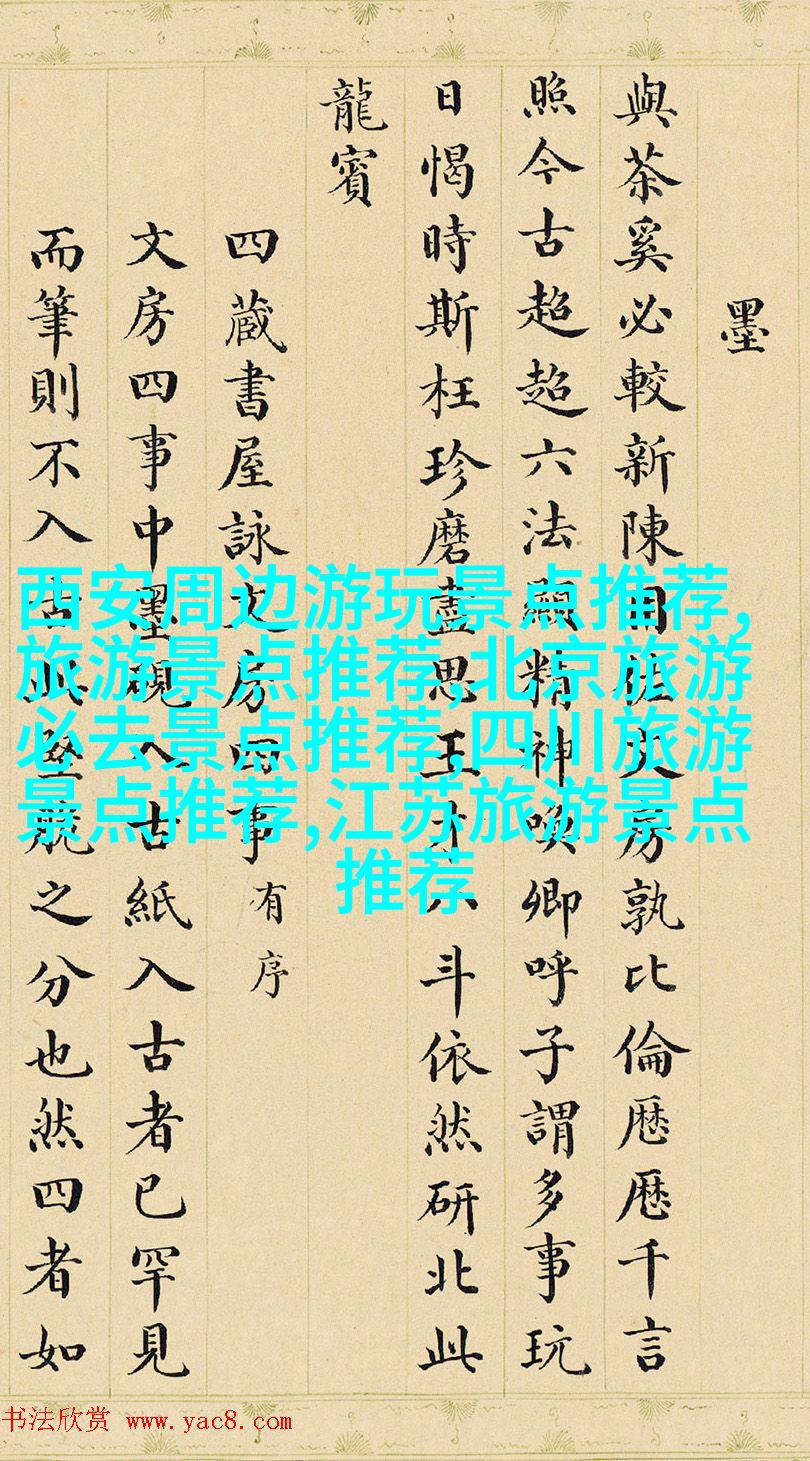 墨
與茶奚必較新陳用佐文房孰比倫厯厯千言
照今古超超六法顯精神喚卿呼子謂多事玩
日愒時斯枉珍磨盡思王才八斗依然研北此
龍賓
四蔵書屋詠文房四事有序
文房四事中墨硯入古紙入古者已罕見
而筆則不入古此堅脆之分也然四者如
西安周边游玩景点推荐,
旅游景点推荐,北京旅游
必去景点推荐,四川旅游
景点推荐,江苏旅游景点
推荐
书法欣赏 www.yac8.com